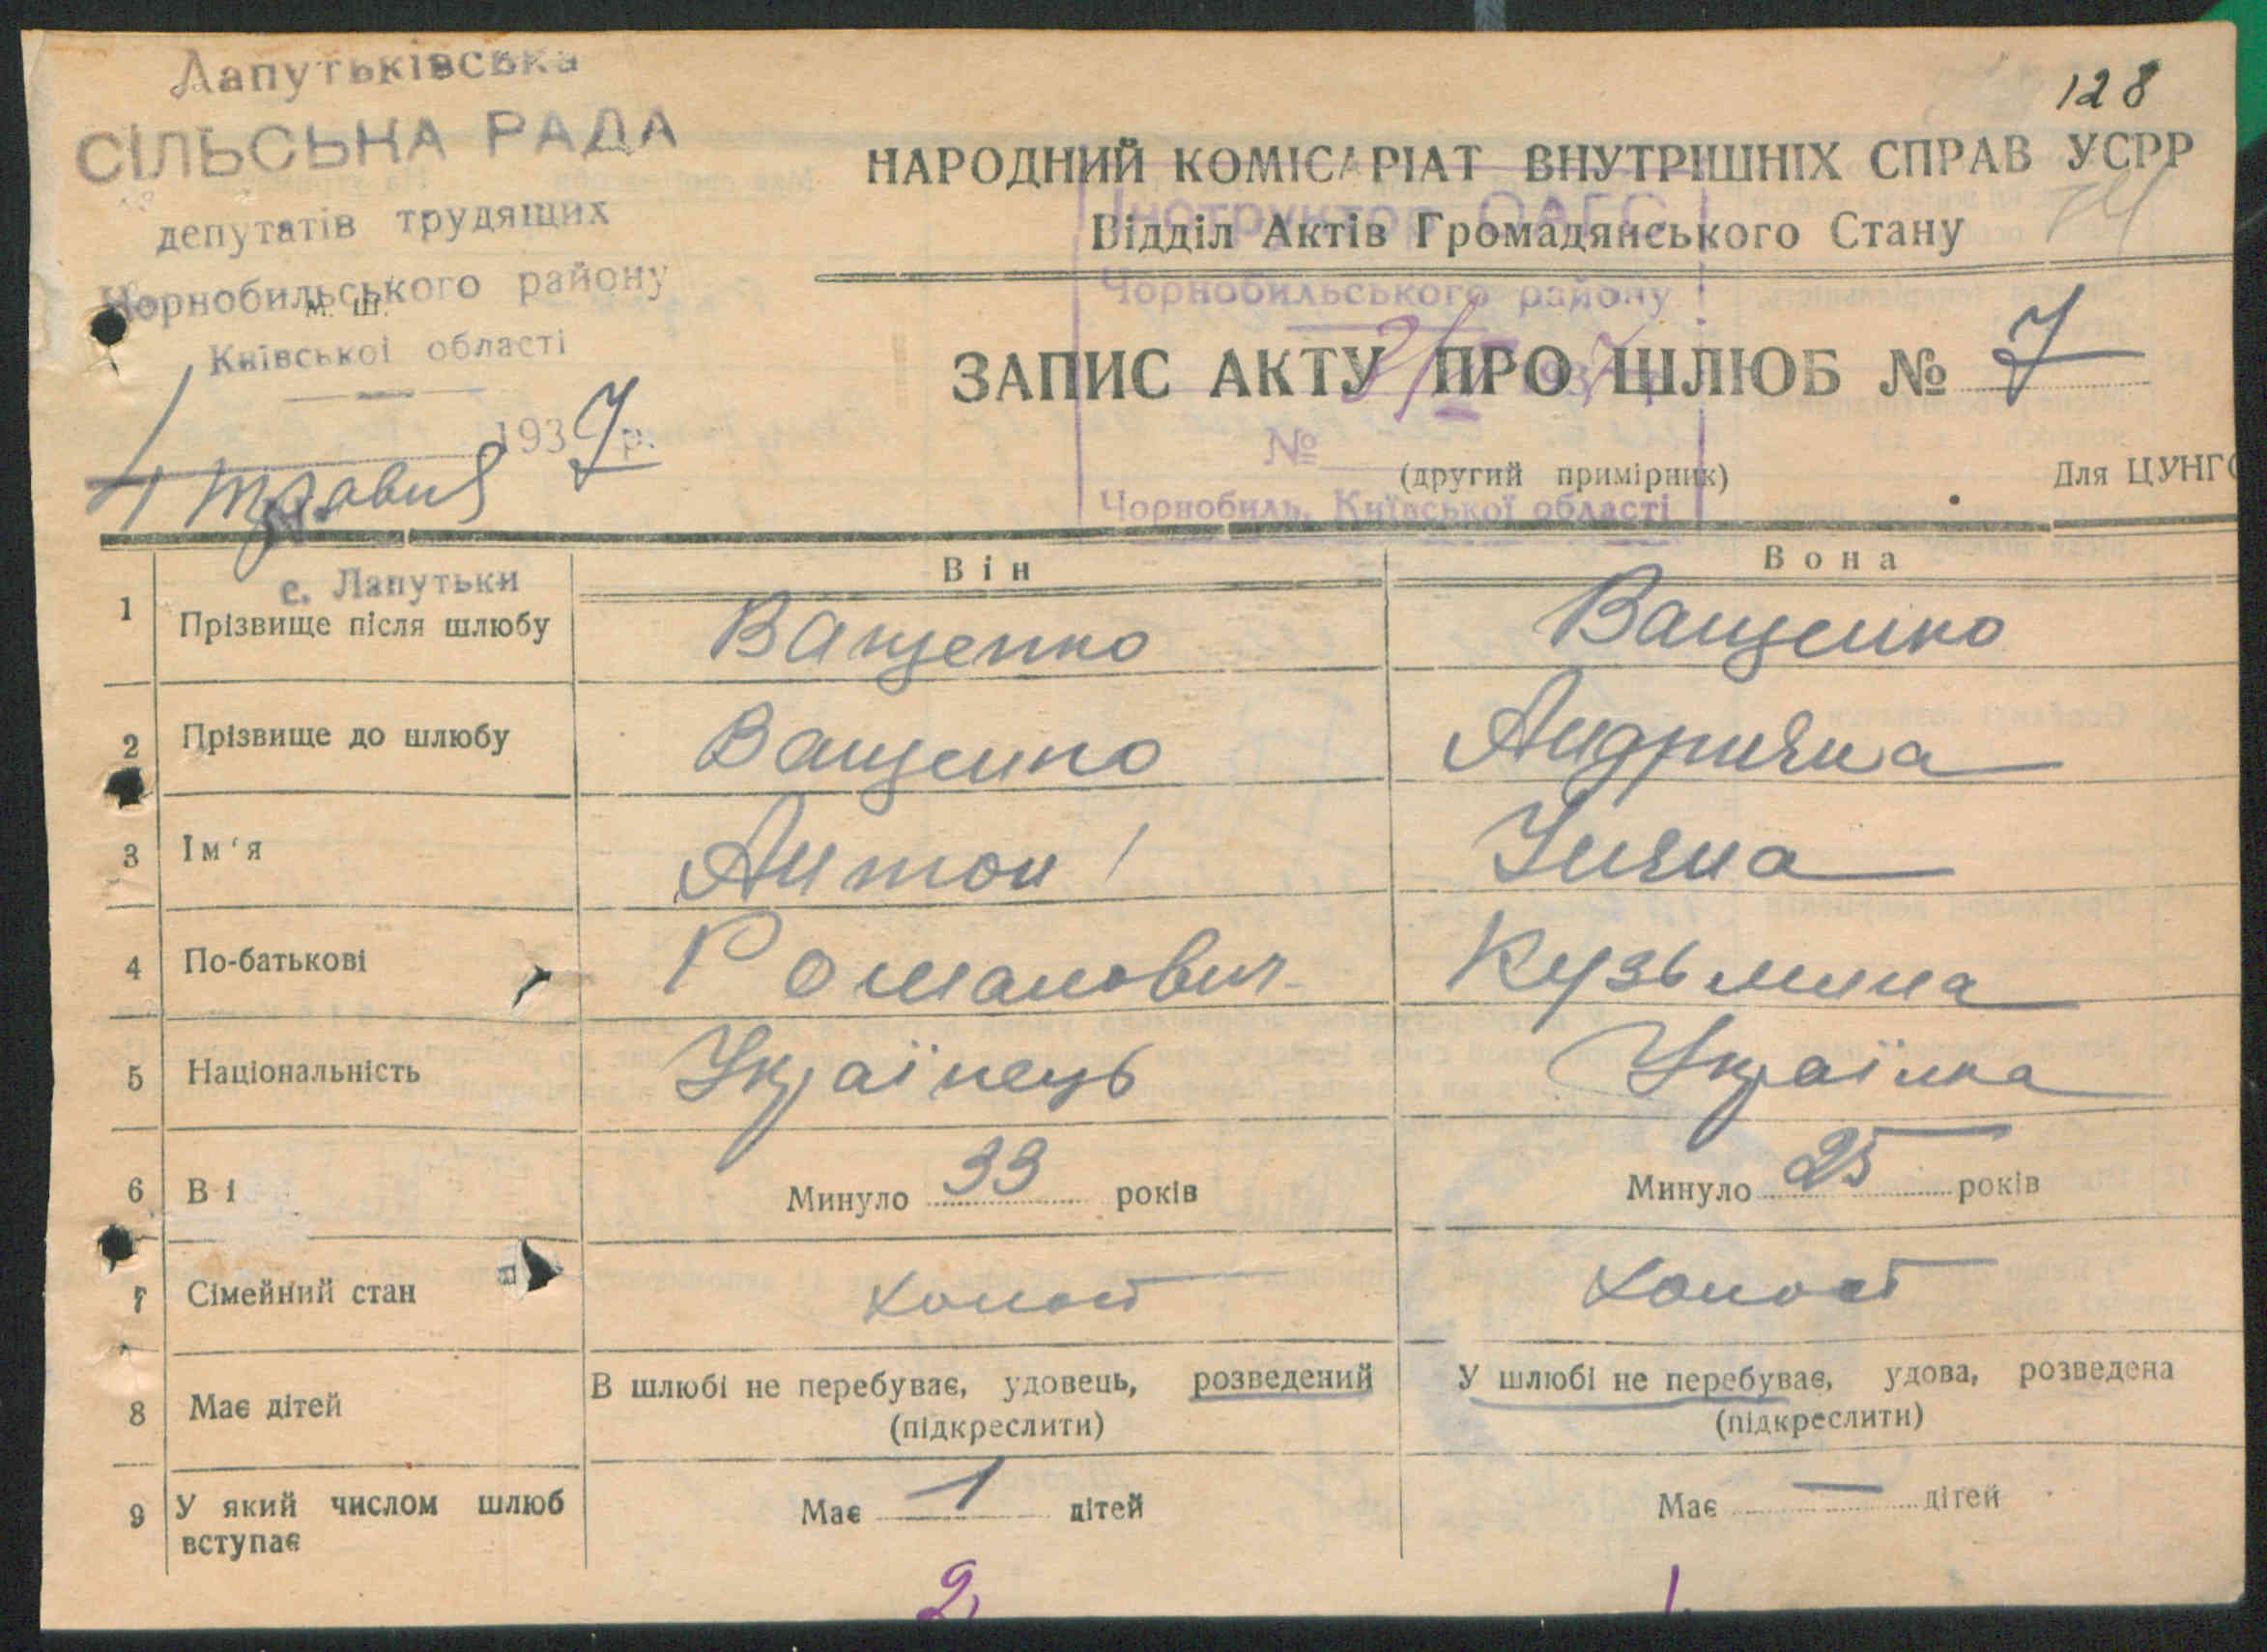 Лапутьківська
СІЛЬСЬКА РАДА
депутатів трудящих
Чорнобильського району
м. ш.
Київської області
4 травня 1937 р.
с. Лапутьки
128
НАРОДНИЙ КОМІСАРІАТ ВНУТРІШНІХ СПРАВ УСРР
Інструктор ОАГС
Відділ Актів Громадянського Стану
Чорнобильського району
ЗАПИС АКТУ ПРО ШЛЮБ № 7
193
№
(другий примірник) Для ЦУНГО
Чорнобиль, Київської області
Він Вона
1 Прізвище після шлюбу Ващенко Ващенко
2 Прізвище до шлюбу Ващенко Андрияна
3 Ім'я Антон Уляна
4 По-батькові Романович Кузьмина
5 Національність Українець Українка
6 Ві Минуло 33 років Минуло 25 років
7 Сімейний стан холост холост
8 Має дітей В шлюбі не перебуває, удовець, розведений У шлюбі не перебуває, удова, розведена
(підкреслити) (підкреслити)
9 У який числом шлюб вступає Має 1 дітей Має — дітей
2 1